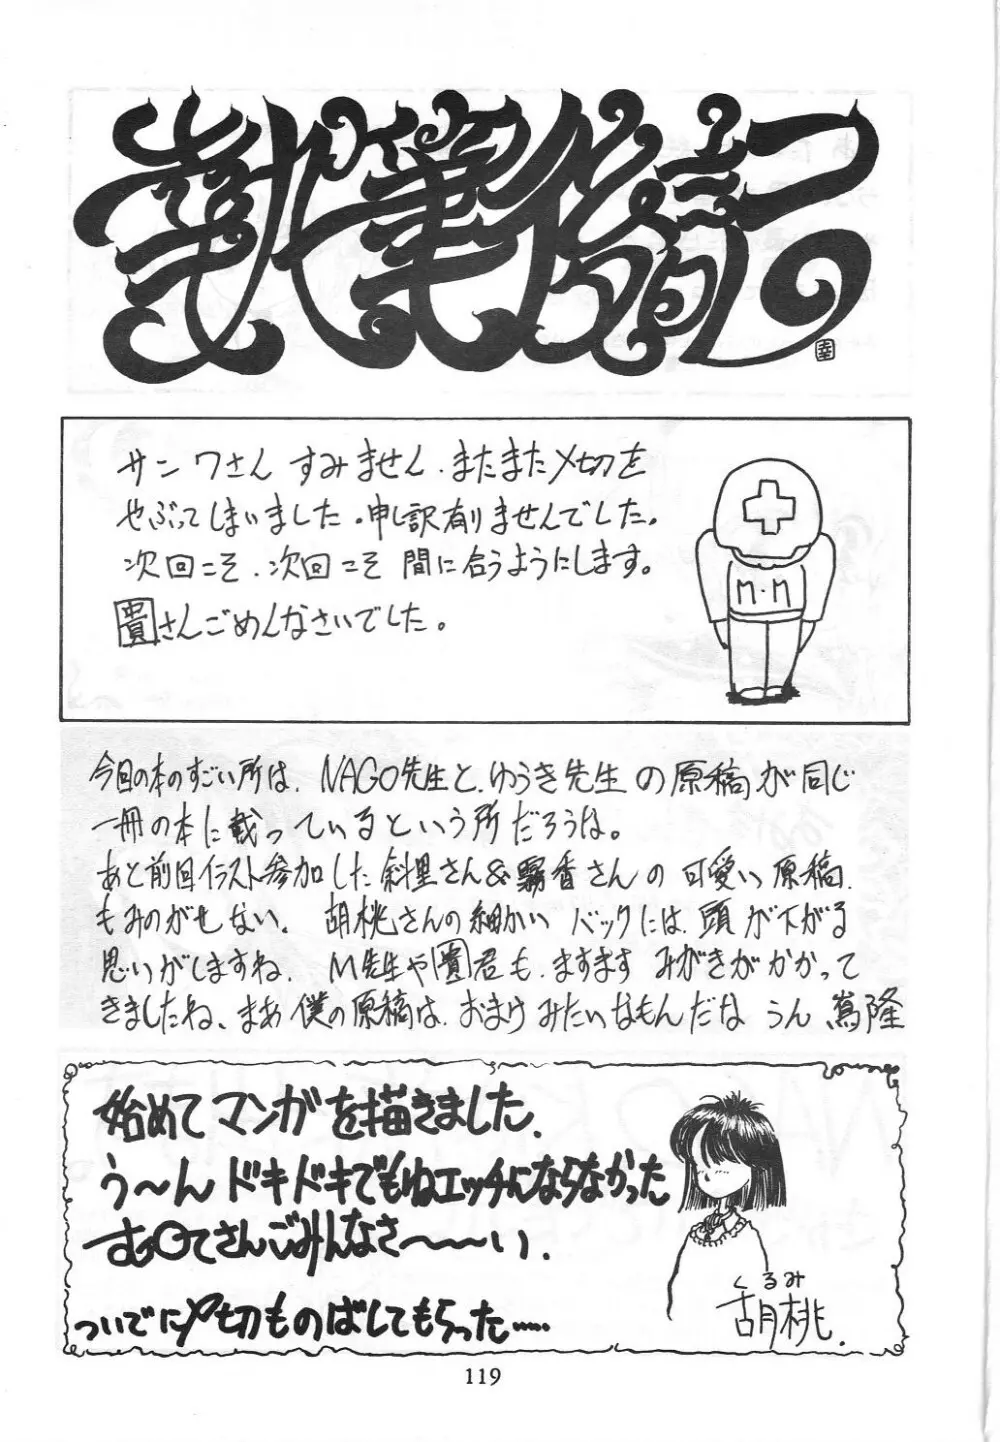 執筆後記
幸
サンワさん すみません.またまた〆切を
やぶってしまいました。申し訳有りませんでした。
次回こそ.次回こそ 間に合うようにします。
貴さんごめんなさいでした。
M・M
今回の本のすごい所は、NAGO先生と、ゆうき先生の原稿が同じ
一冊の本に載っているという所だろうな。
あと前回イラスト参加した斜里さん&霧香さんの可愛い原稿、
ものがせない。胡桃さんの細かいバックには、頭が下がる
思いがしますね。M先生や貴君も、ますますみがきがかかって
きましたね、まあ僕の原稿は、おまけみたいなもんだな うん 嵩隆
始めてマンガを描きました。
う〜んドキドキでもねエッチにならなかった
む〇てさんごみんなさ〜〜〜い.
ついでに〆切ものばしてもらった……
くるみ
胡桃.
119